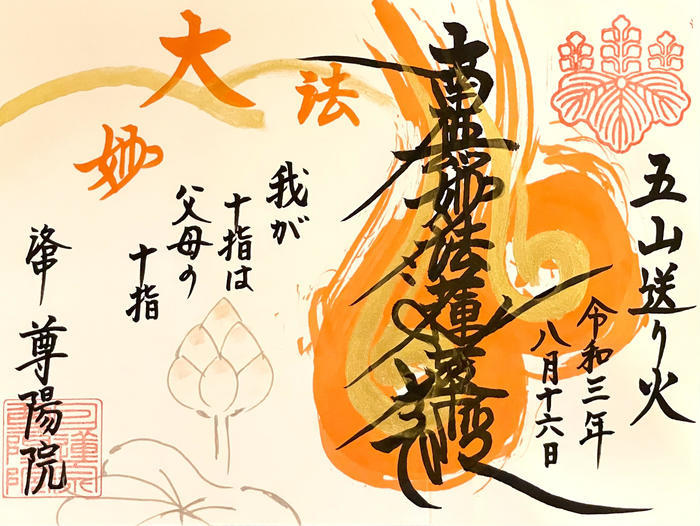 五山送り火
令和三年
八月十六日
南無妙法蓮華経
大
法
妙
我が
十指は
父母の
十指
洛中 尊陽院